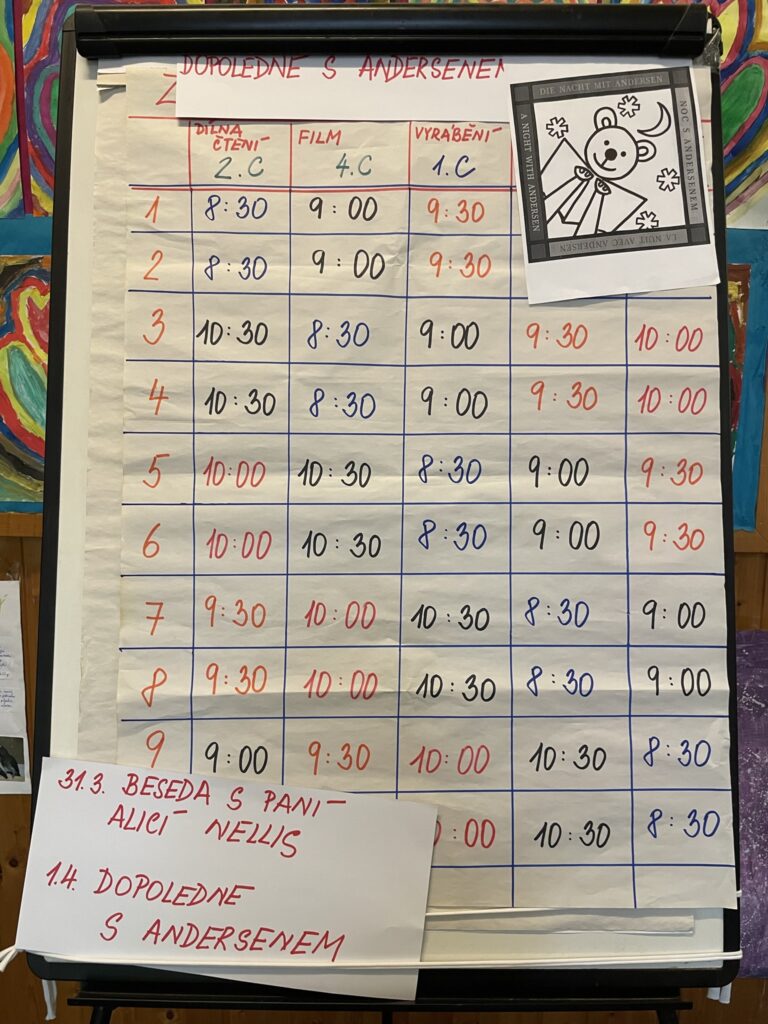 DOPOLEDNE S ANDERSENEM
DÍLNA ČTENÍ FILM VYRÁBĚNÍ
2.C 4.C 1.C
1 8:30 9:00 9:30
2 8:30 9:00 9:30
3 10:30 8:30 9:00 9:30 10:00
4 10:30 8:30 9:00 9:30 10:00
5 10:00 10:30 8:30 9:00 9:30
6 10:00 10:30 8:30 9:00 9:30
7 9:30 10:00 10:30 8:30 9:00
8 9:30 10:00 10:30 8:30 9:00
9 9:00 9:30 10:00 10:30 8:30
:00 10:30 8:30
DIE NACHT MIT ANDERSEN
NOC S ANDERSENEM
LA NUIT AVEC ANDERSEN
A NIGHT WITH ANDERSEN
31.3. BESEDA S PANÍ
ALICÍ NELLIS
1.4. DOPOLEDNE
S ANDERSENEM